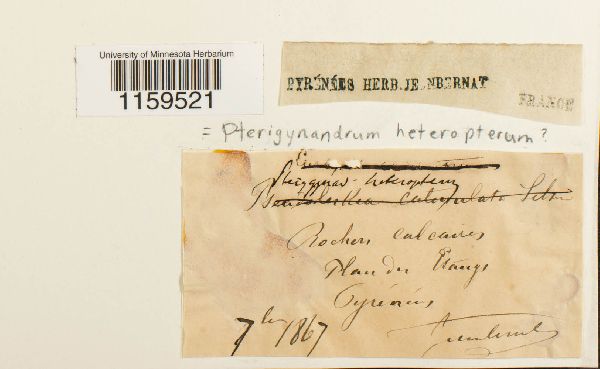 University of Minnesota Herbarium
1159521
PYRÉNÉES HERB.JEANBERNAT
FRANCE
= Pterigynandrum heteropterum?
Pterigynan. heteropterum
Pseudoleskea catenulata
Rochers calcaires
Plan des Etangs
Pyrénées
7bre 1867